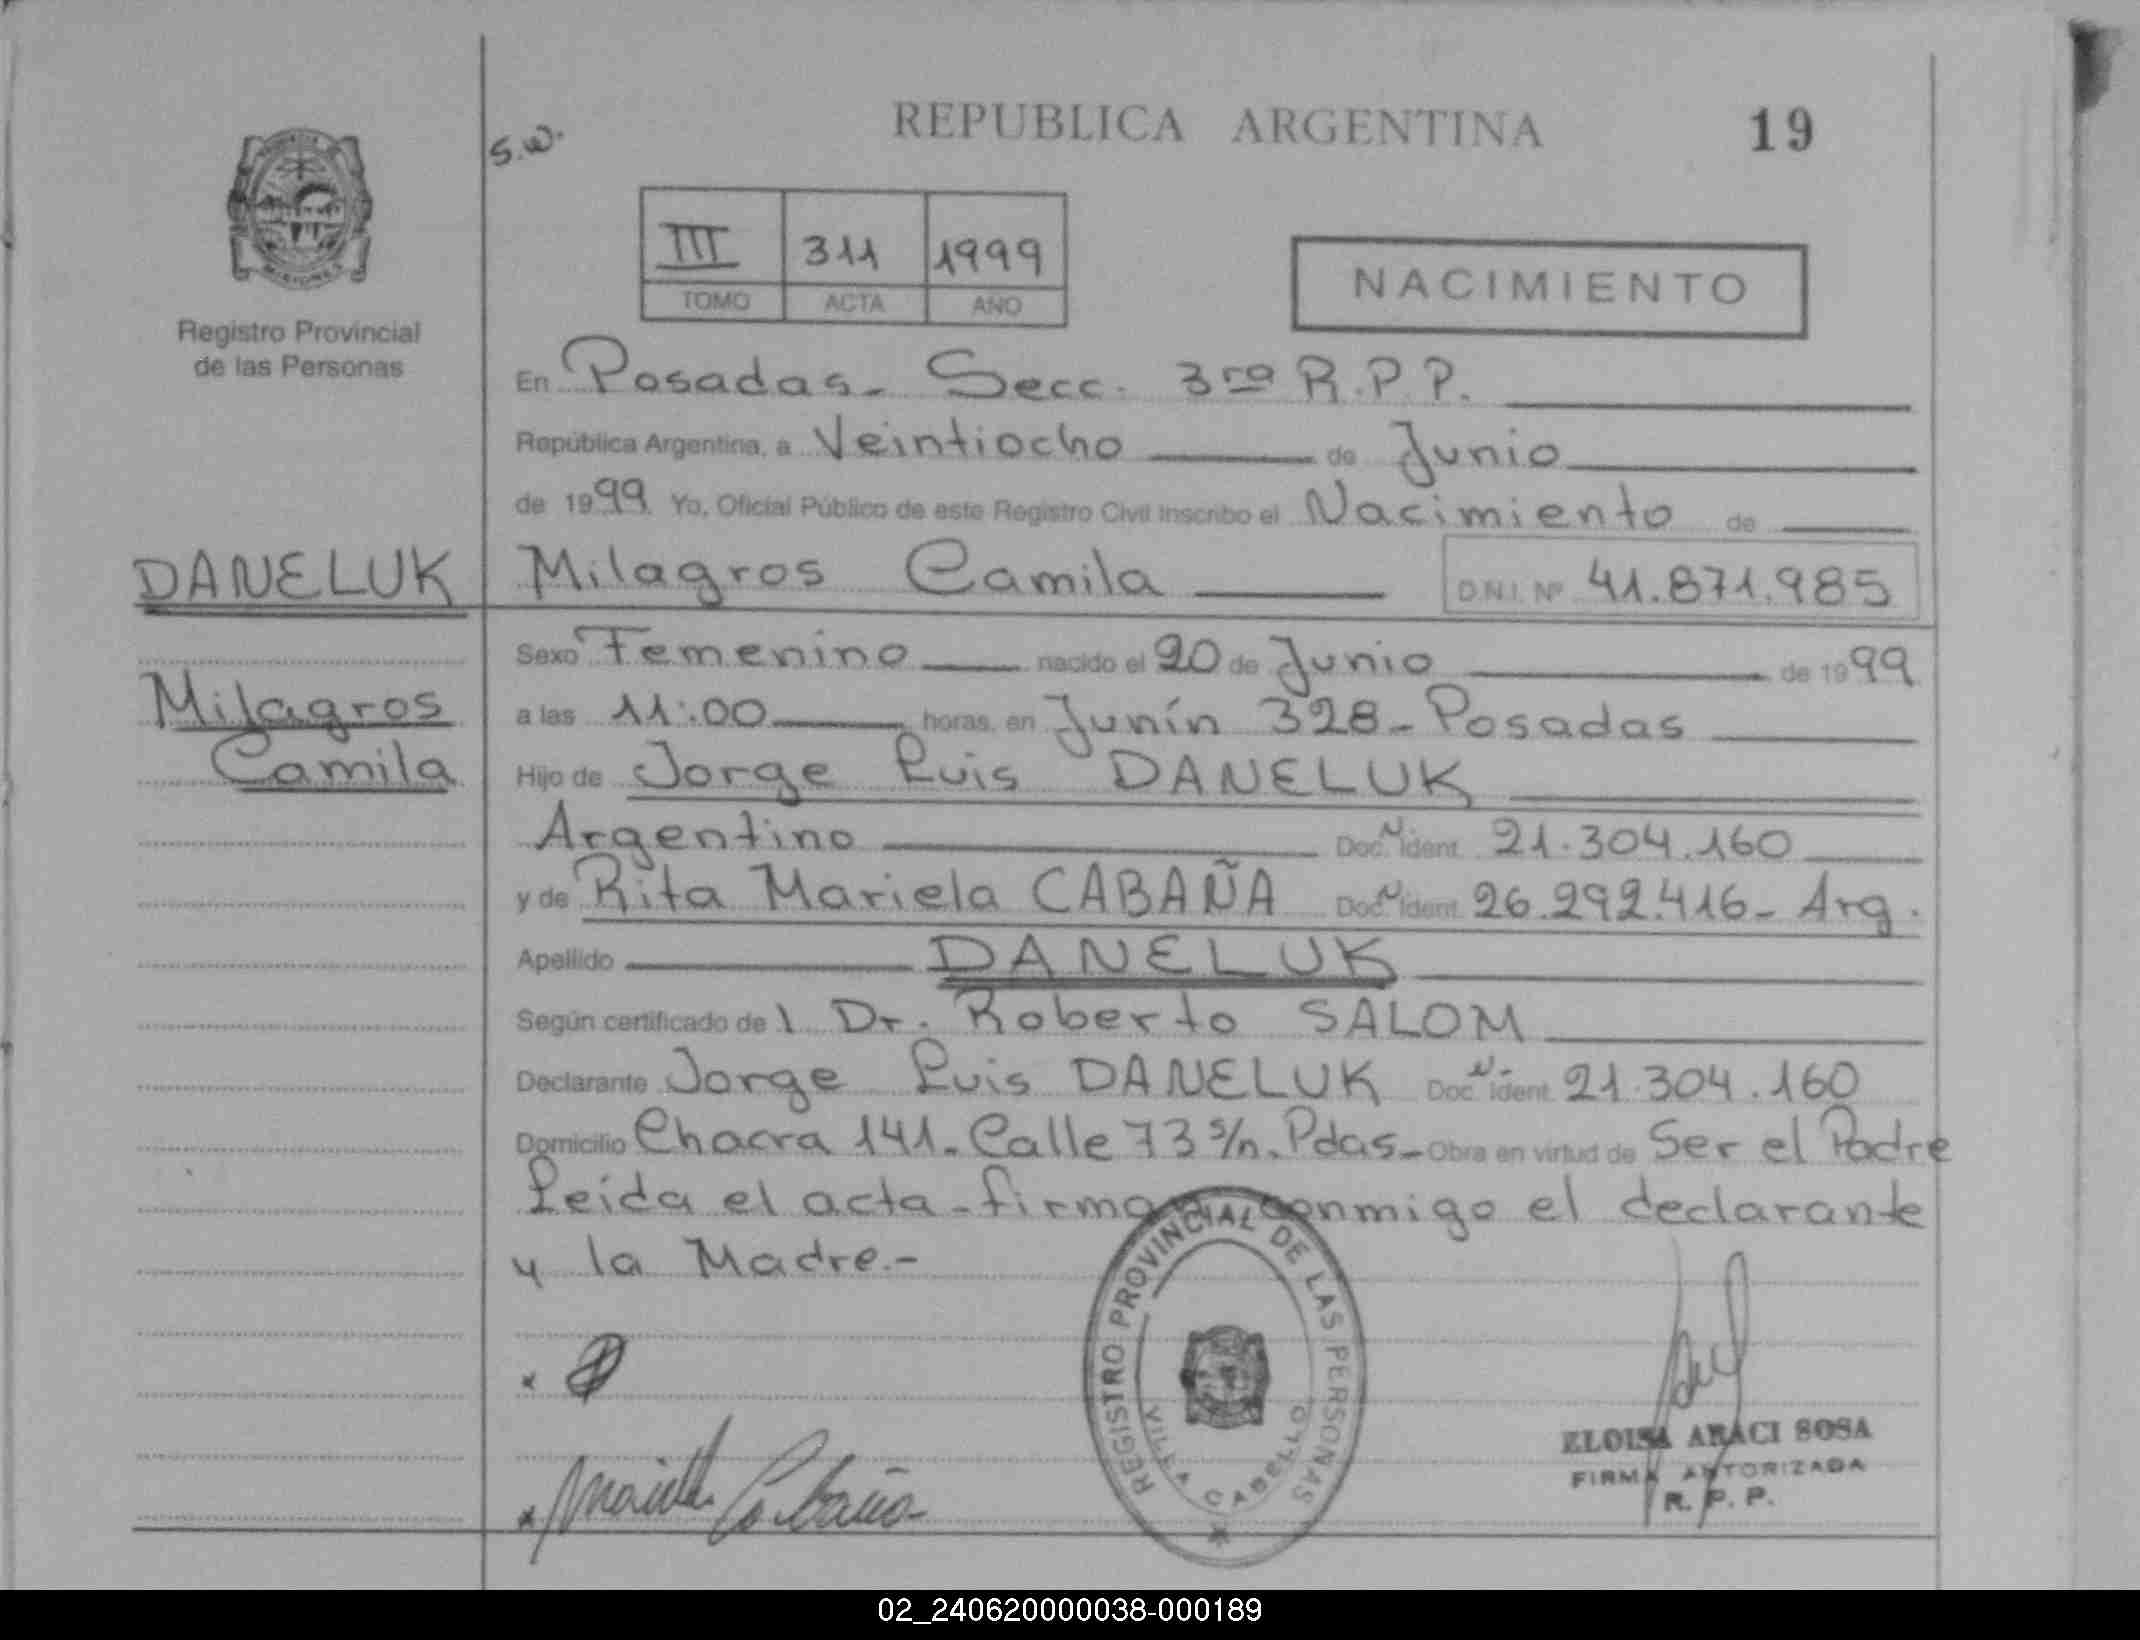 REPUBLICA ARGENTINA
19
S.W.
III 311 1999
TOMO ACTA AÑO
NACIMIENTO
MISIONES
Registro Provincial
de las Personas
En Posadas - Secc. 3ra R.P.P.
República Argentina, a Veintiocho de Junio
de 1999 Yo, Oficial Público de este Registro Civil inscribo el Nacimiento de
DANELUK Milagros Camila D.N.I. Nº 41.871.985
Sexo Femenino nacido el 20 de Junio de 1999
Milagros
a las 11:00 horas, en Junín 328 - Posadas
Camila
Hijo de Jorge Luis DANELUK
Argentino Doc. N ident. 21.304.160
y de Rita Mariela CABAÑA Doc. N ident. 26.292.416 - Arg.
Apellido DANELUK
Según certificado de l Dr. Roberto SALOM
Declarante Jorge Luis DANELUK Doc. N ident. 21.304.160
Domicilio Chacra 141 - Calle 73 s/n. Pdas - Obra en virtud de Ser el Padre
Leída el acta - firma conmigo el declarante
y la Madre.-
REGISTRO PROVINCIAL DE LAS PERSONAS
VILLA CABELLO
Cabaña
ELOISA ARACI SOSA
FIRMA AUTORIZADA
R. P. P.
02_240620000038-000189